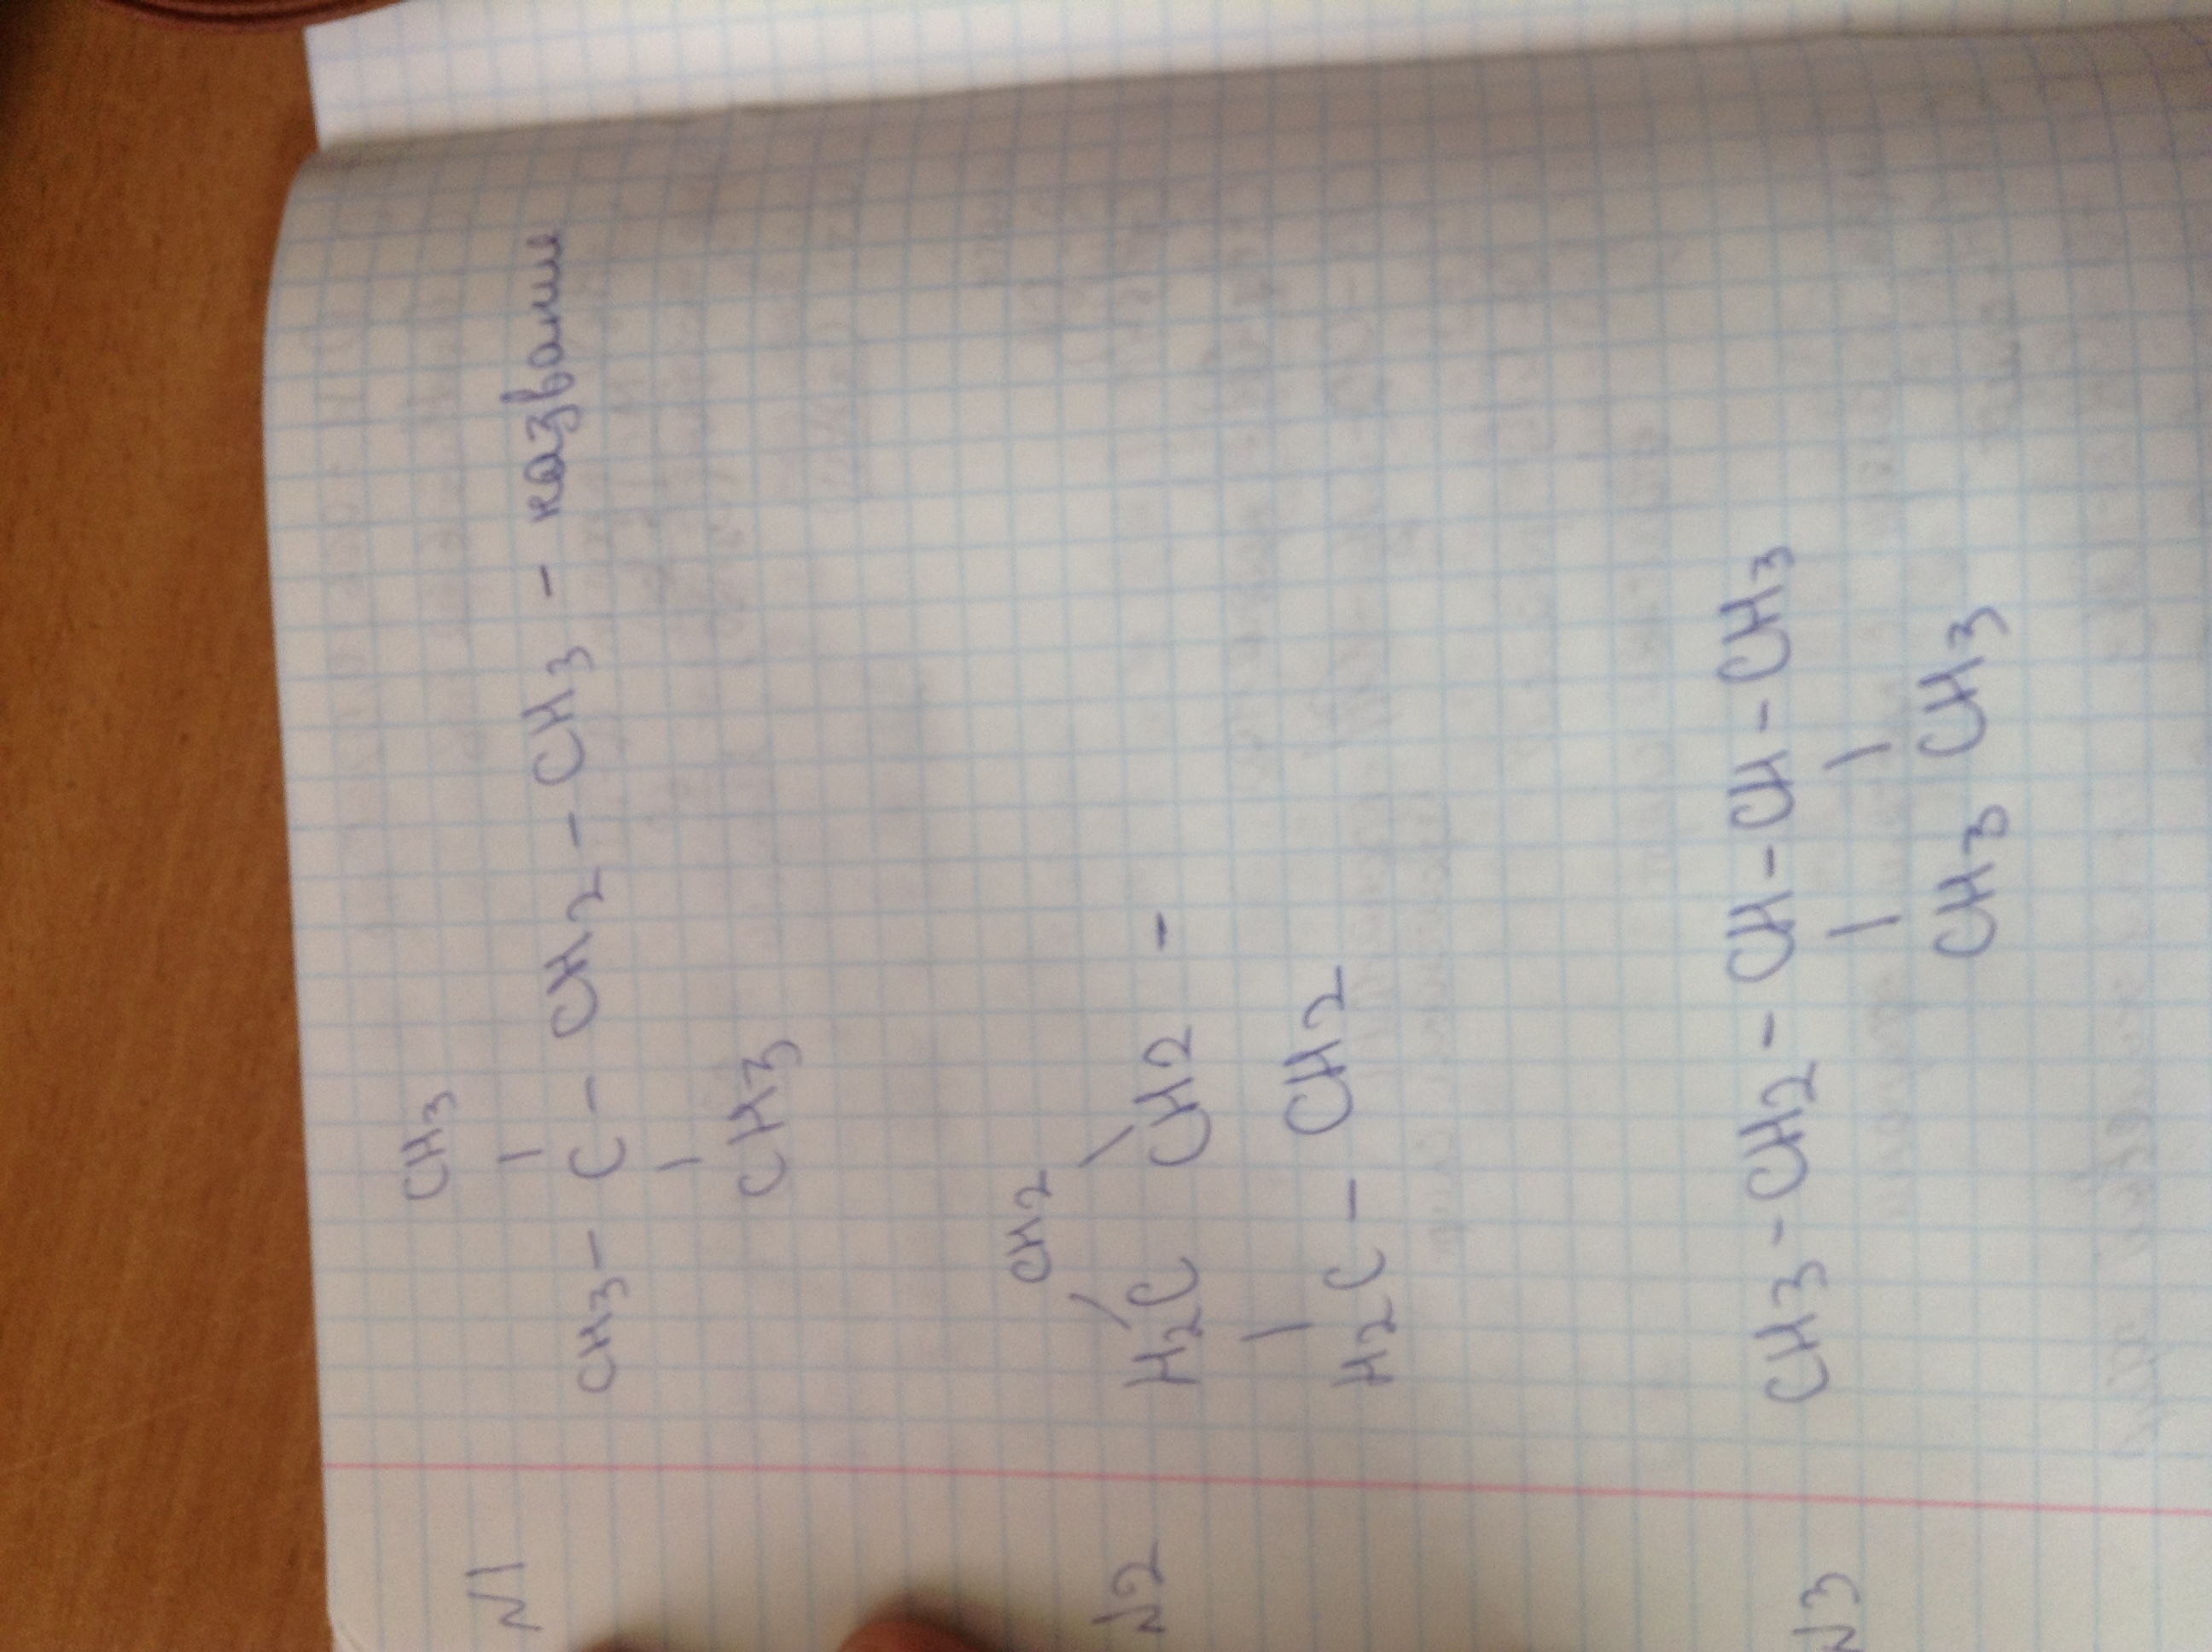 CH3
N1 CH3 - C - CH2 - CH3 - название
CH3
CH2
N2 H2C CH2 -
H2C - CH2
N3 CH3 - CH2 - CH - CH - CH3
CH3 CH3